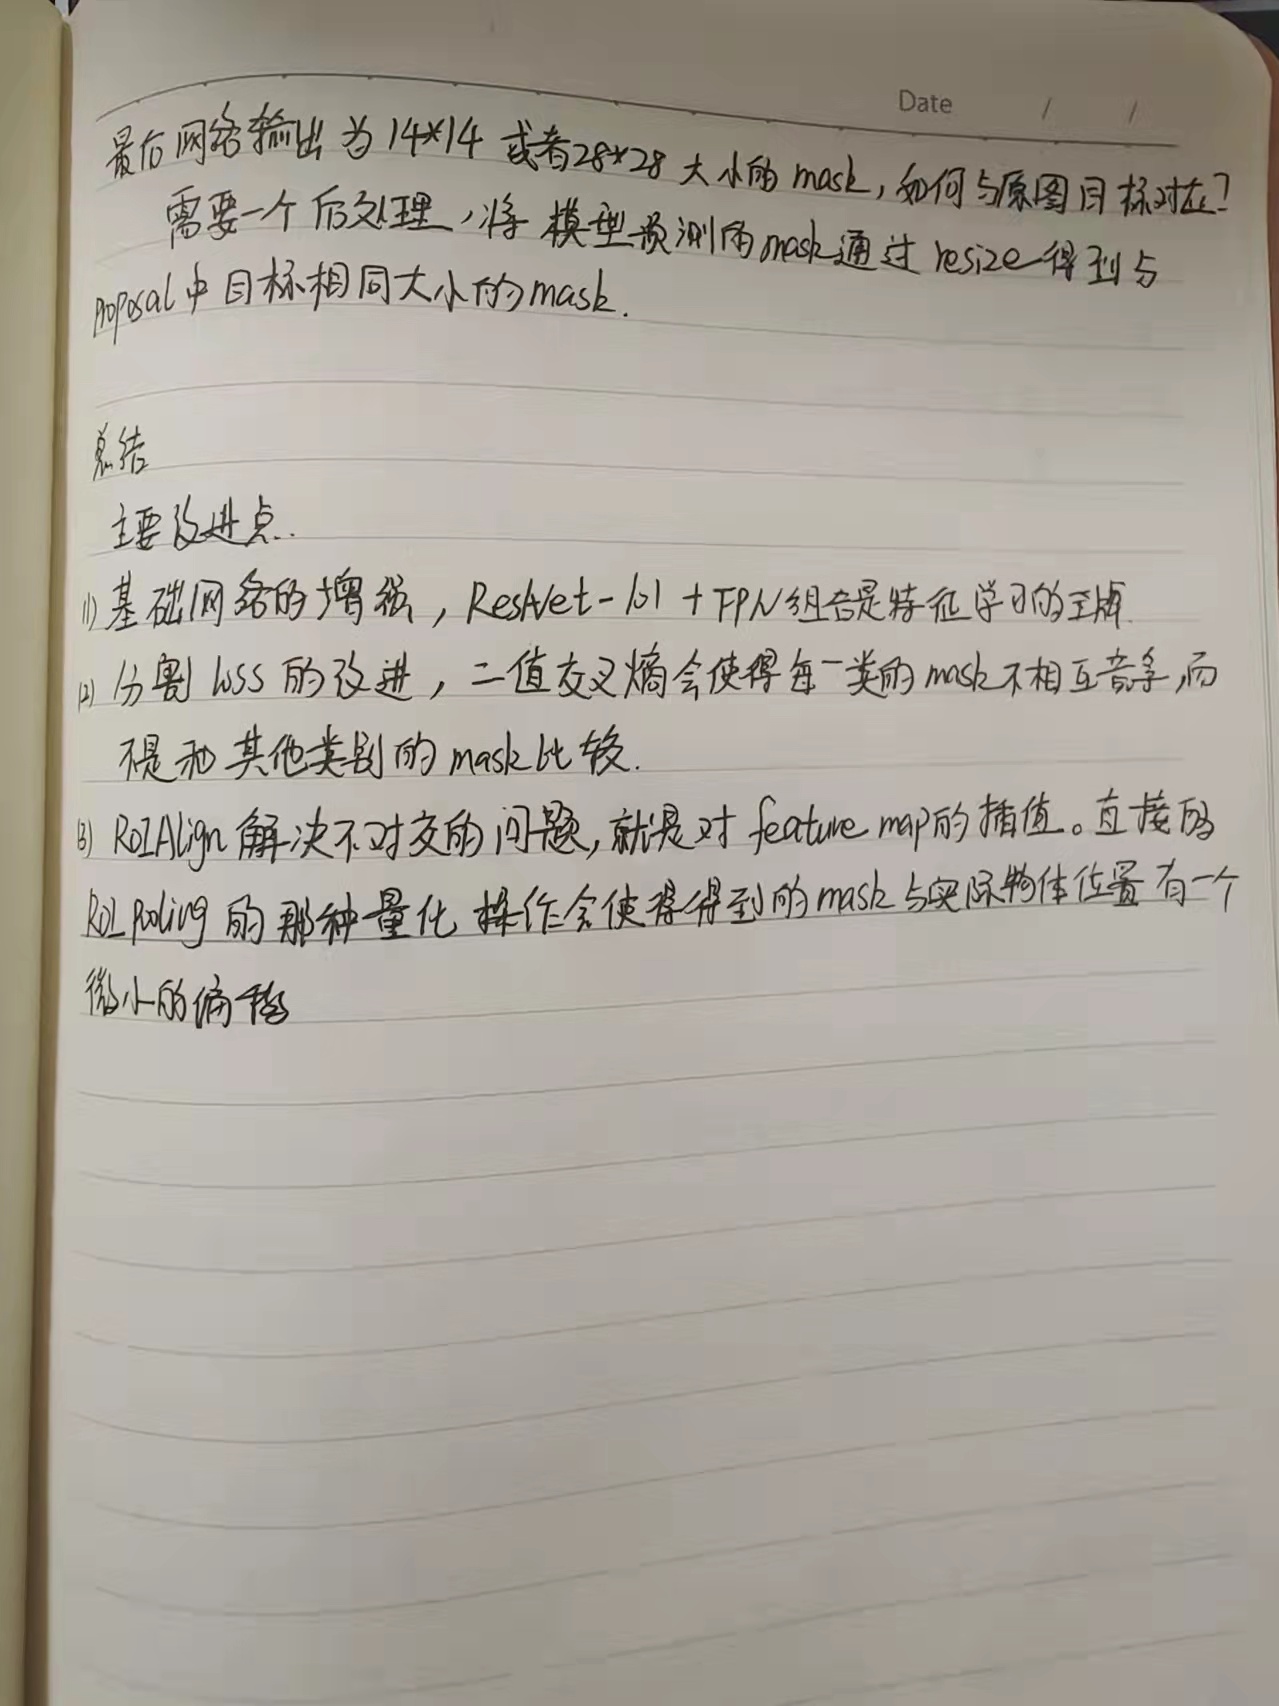 Date / /
最后网络输出为14*14 或者28*28 大小的mask,如何与原图目标对应?
需要一个后处理,将模型预测的mask通过resize得到与
proposal中目标相同大小的mask.
总结
主要改进点.
(1) 基础网络的增强,ResNet-101 + FPN组合是特征学习的王牌.
(2) 分割loss的改进,二值交叉熵会使得每一类的mask不相互竞争,而
不是和其他类别的mask比较.
(3) ROIAlign解决不对齐的问题,就是对feature map的插值。直接的
ROI Pooling的那种量化操作会使得得到的mask与实际物体位置有一个
微小的偏移